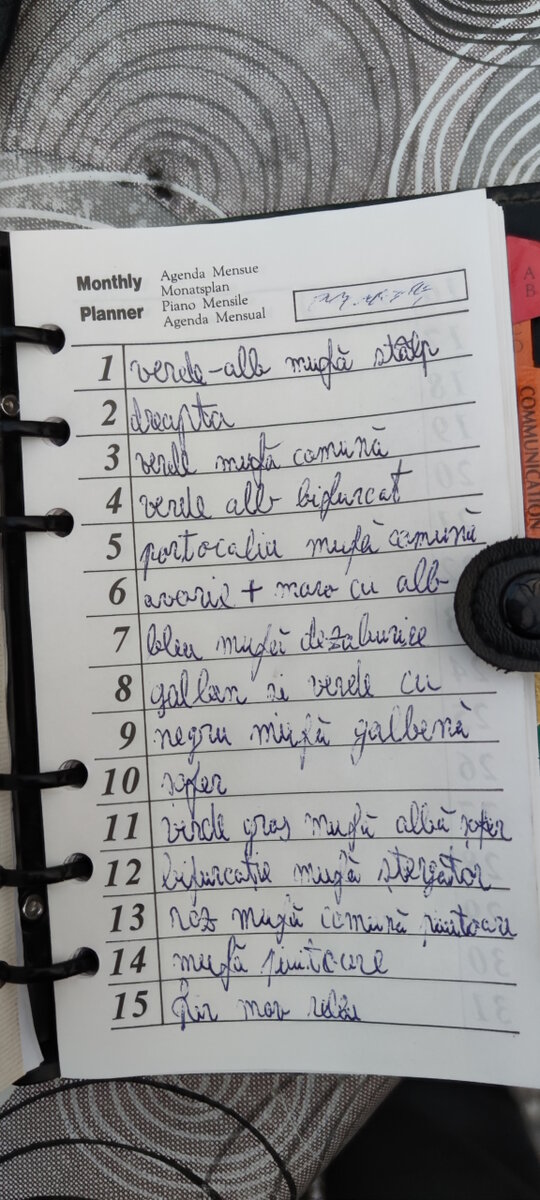 Monthly Planner
Agenda Mensue
Monatsplan
Piano Mensile
Agenda Mensual
1 verde-alb mufă stâlp
2 dreapta
3 verde mufă comună
4 verde alb bifurcat
5 portocaliu mufă comună
6 avarie + maro cu alb
7 bleu mufă dezaburire
8 galben si verde cu
9 negru mufă galbenă
10 sofer
11 verde gros mufă albă șofer
12 bifurcatie mufă ștergător
13 roz mufă comună
14 mufă
15 fir mov releu
A
B
COMMUNICATION